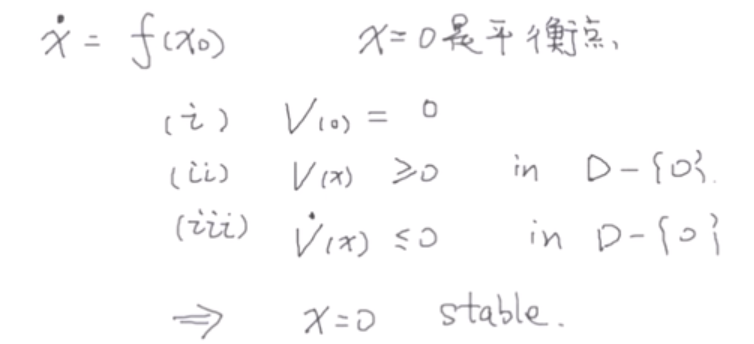 ẋ = f(x₀) x=0是平衡点、
(i) V(0) = 0
(ii) V(x) ≥0 in D-{0}.
(iii) V̇(x) ≤0 in D-{0}
⇒ x=0 stable.